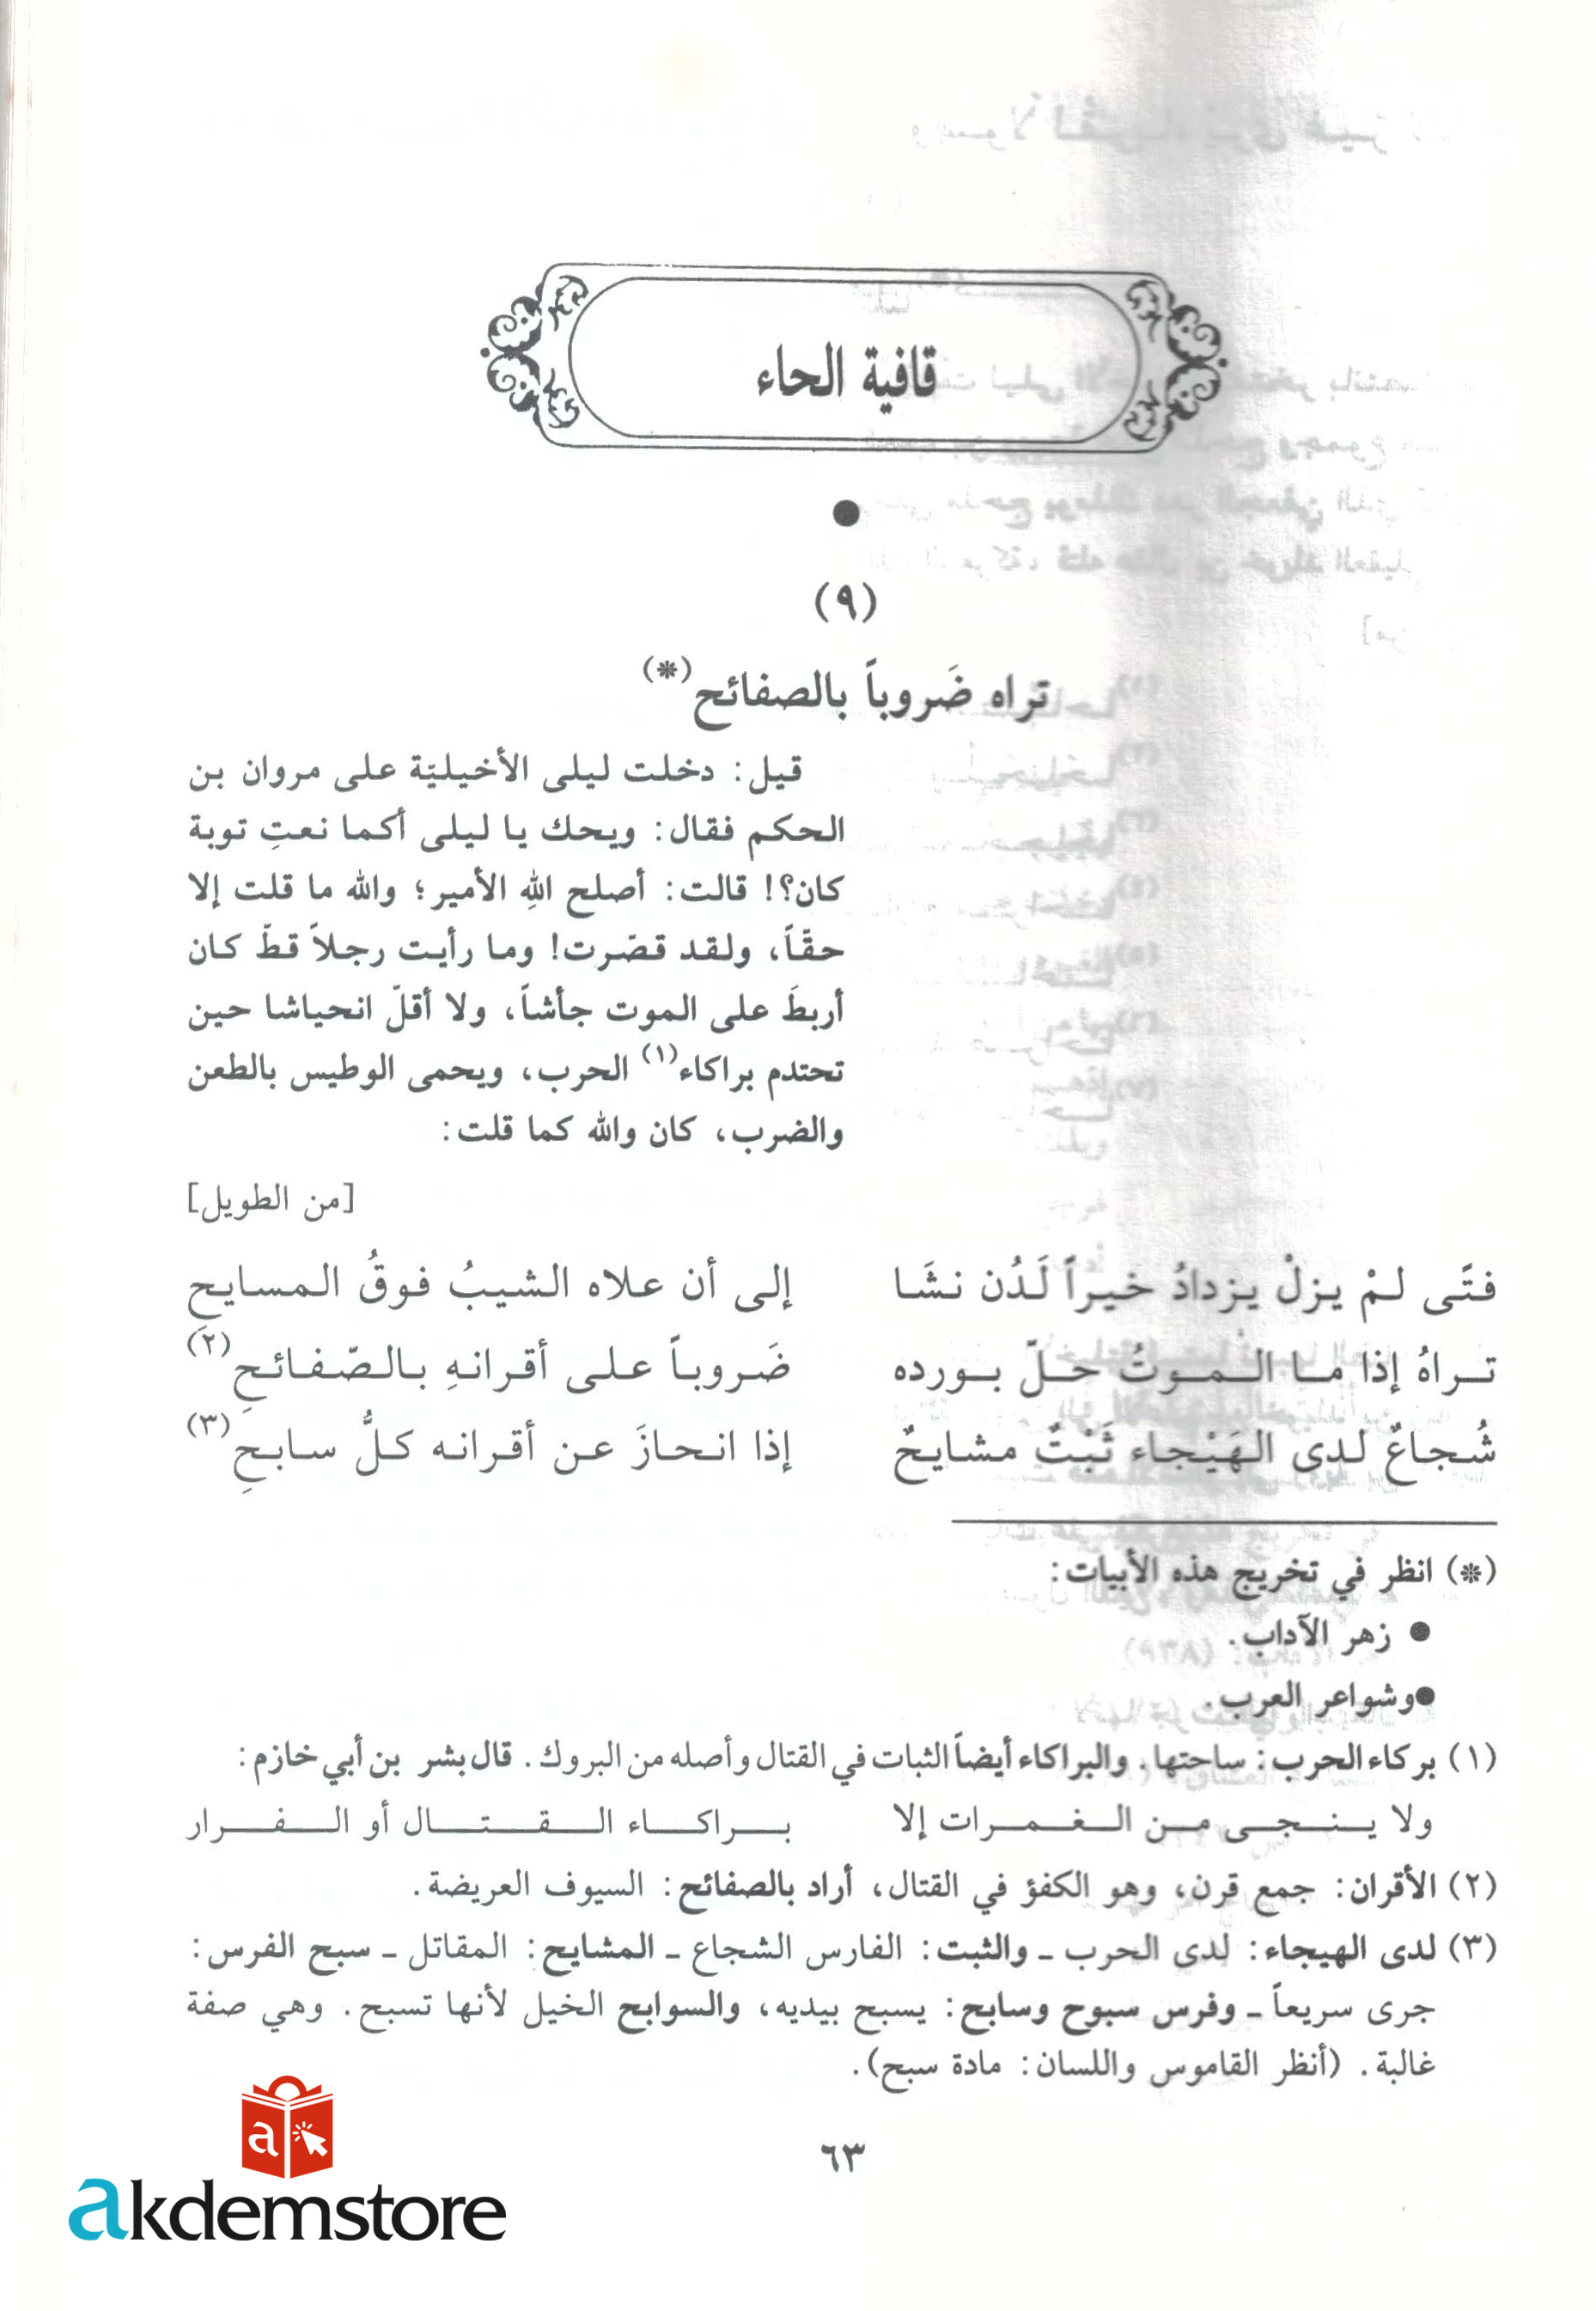 قافية الحاء
●
(٩)
تراه ضَروباً بالصفائح(*)
قيل: دخلت ليلى الأخيليّة على مروان بن
الحكم فقال: ويحك يا ليلى أكما نعتِ توبة
كان؟! قالت: أصلح اللهِ الأمير؛ والله ما قلت إلا
حقّاً، ولقد قصّرت! وما رأيت رجلاً قطّ كان
أربطَ على الموت جأشاً، ولا أقلّ انحياشا حين
تحتدم براكاء(١) الحرب، ويحمى الوطيس بالطعن
والضرب، كان والله كما قلت:
[من الطويل]
فتًى لمْ يزلْ يزدادُ خيراً لَدُن نشَا إلى أن علاه الشيبُ فوقُ المسايح
تراهُ إذا ما الموتُ حلّ بورده ضَروباً على أقرانهِ بالصّفائحِ(٢)
شُجاعٌ لدى الهَيْجاء ثَبْتٌ مشايحٌ إذا انحازَ عن أقرانه كلُّ سابحِ(٣)
(*) انظر في تخريج هذه الأبيات:
● زهر الآداب.
●وشواعر العرب.
(١) بركاء الحرب: ساحتها. والبراكاء أيضاً الثبات في القتال وأصله من البروك. قال بشر بن أبي خازم:
ولا ينجى من الغمرات إلا براكاء القتال أو الفرار
(٢) الأقران: جمع قرن، وهو الكفؤ في القتال، أراد بالصفائح: السيوف العريضة.
(٣) لدى الهيجاء: لدى الحرب ـ والثبت: الفارس الشجاع ـ المشايح: المقاتل ـ سبح الفرس:
جرى سريعاً ـ وفرس سبوح وسابح: يسبح بيديه، والسوابح الخيل لأنها تسبح. وهي صفة
غالبة. (أنظر القاموس واللسان: مادة سبح).
٦٣
a
akdemstore